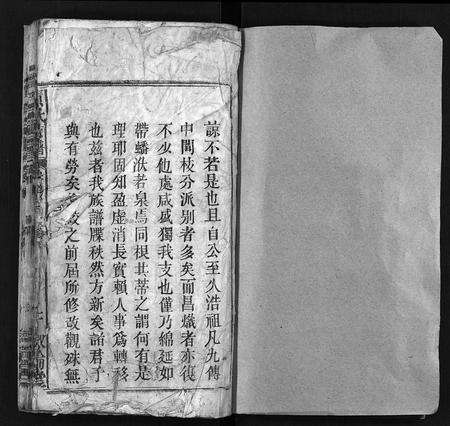 諒不若是也且自公至久浩祖凡九傳
中間枝分派別者多矣而昌熾者亦復
不少他處咸咸獨我支也僅乃綿延如
帶蟠泆若泉焉同根共蒂之謂何有是
理耶固知盈虛消長實賴人事為轉移
也茲者我族譜牒秩然方新矣諸君子
與有勞矣 較之前屆所修改觀殊無